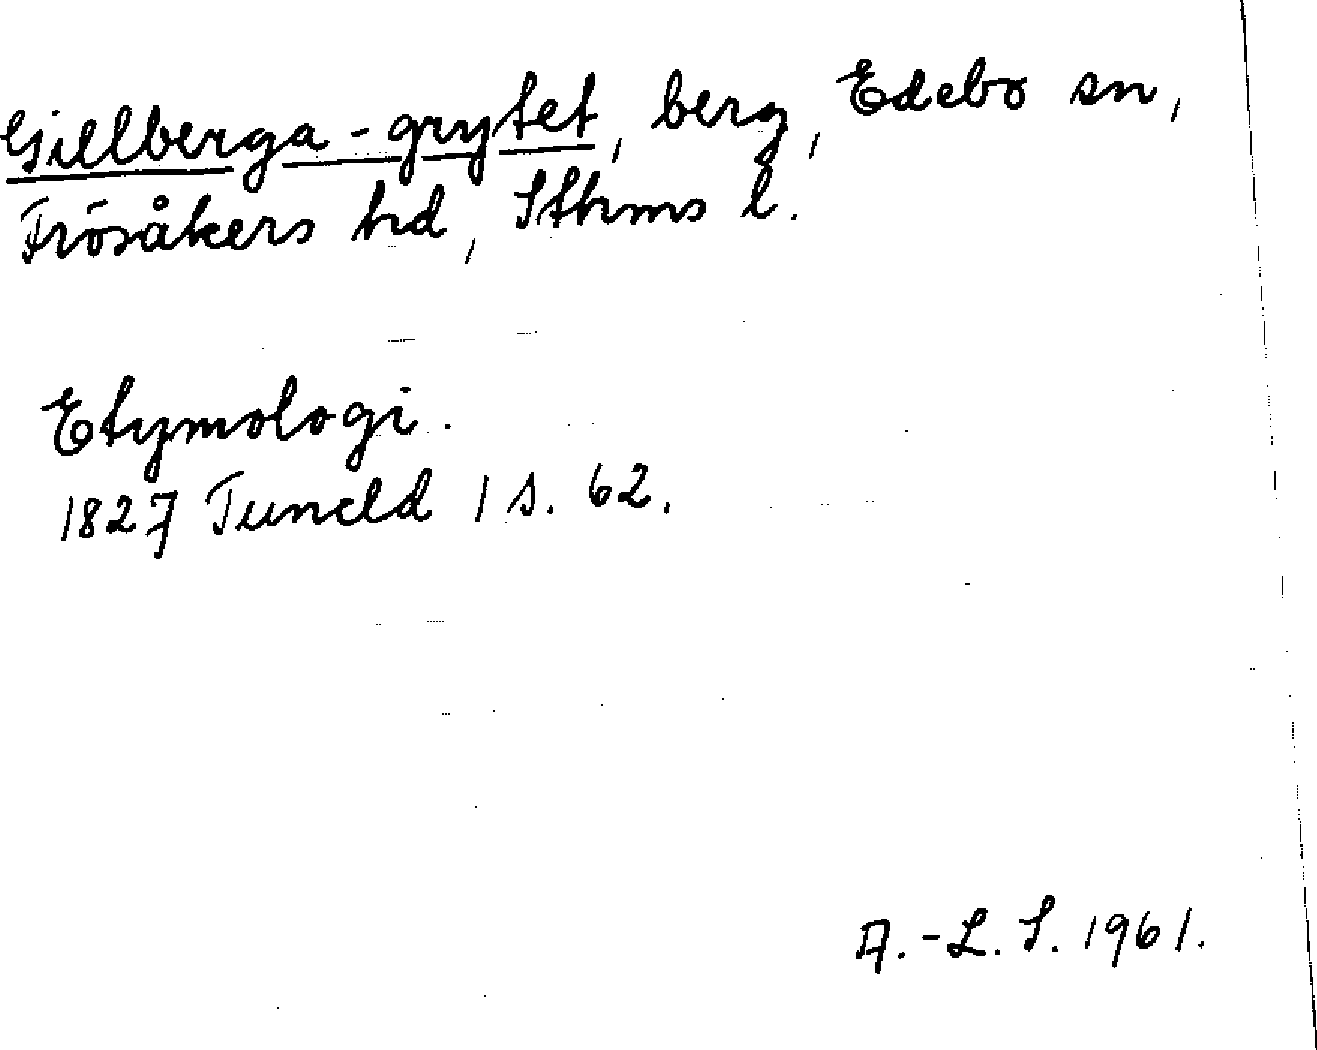 Gillberga-grytet, berg, Edebo sn,
Frösåkers hd, Sthms l.
Etymologi.
1827 Tuneld I s. 62.
A.-L. S. 1961.